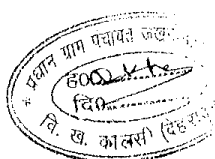 * प्रधान ग्राम पंचायत
ह0
दि0
वि. ख. कालसी (देहरा